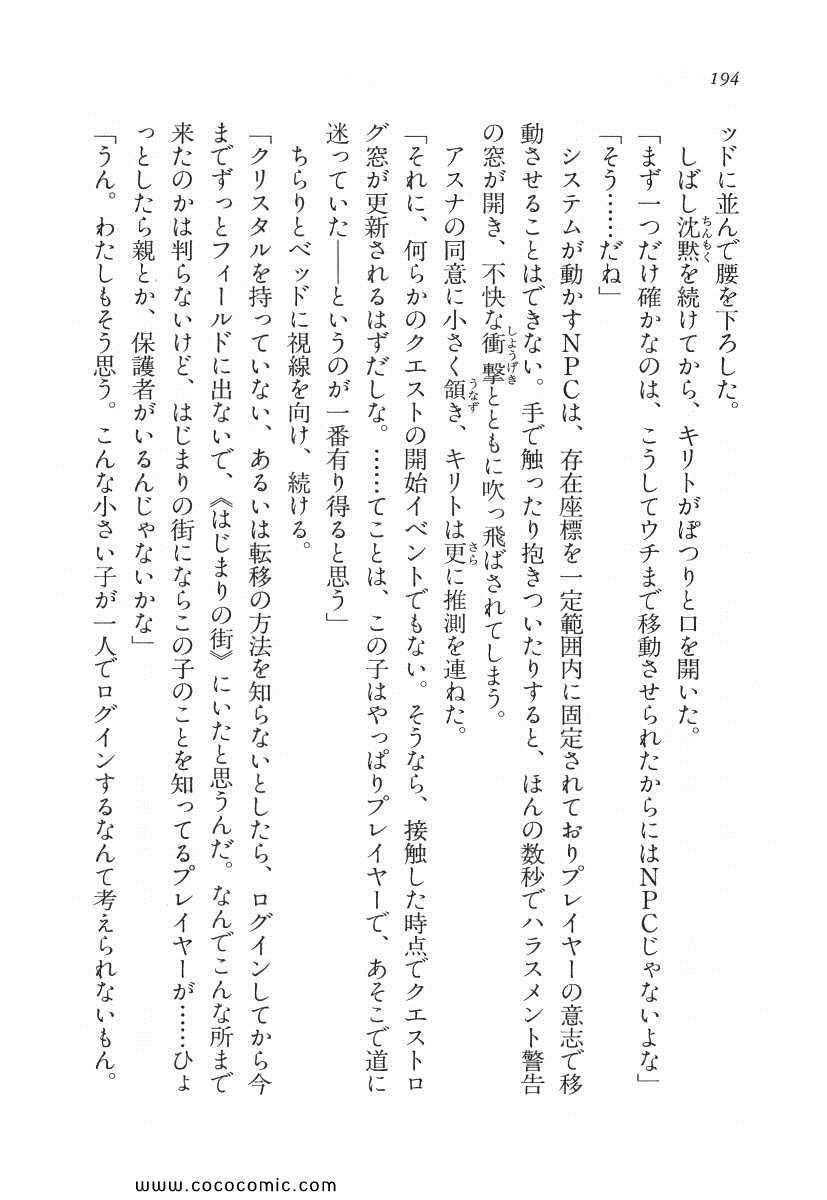 194
ッドに並んで腰を下ろした。
しばし沈黙を続けてから、キリトがぽつりと口を開いた。
「まず一つだけ確かなのは、こうしてウチまで移動させられたからにはNPCじゃないよな」
「そう……だね」
システムが動かすNPCは、存在座標を一定範囲内に固定されておりプレイヤーの意志で移
動させることはできない。手で触ったり抱きついたりすると、ほんの数秒でハラスメント警告
の窓が開き、不快な衝撃とともに吹っ飛ばされてしまう。
アスナの同意に小さく頷き、キリトは更に推測を連ねた。
「それに、何らかのクエストの開始イベントでもない。そうなら、接触した時点でクエストロ
グ窓が更新されるはずだしな。……てことは、この子はやっぱりプレイヤーで、あそこで道に
迷っていた――というのが一番有り得ると思う」
ちらりとベッドに視線を向け、続ける。
「クリスタルを持っていない、あるいは転移の方法を知らないとしたら、ログインしてから今
までずっとフィールドに出ないで、《はじまりの街》にいたと思うんだ。なんでこんな所まで
来たのかは判らないけど、はじまりの街にならこの子のことを知ってるプレイヤーが……ひょ
っとしたら親とか、保護者がいるんじゃないかな」
「うん。わたしもそう思う。こんな小さい子が一人でログインするなんて考えられないもん。
www.cococomic.com